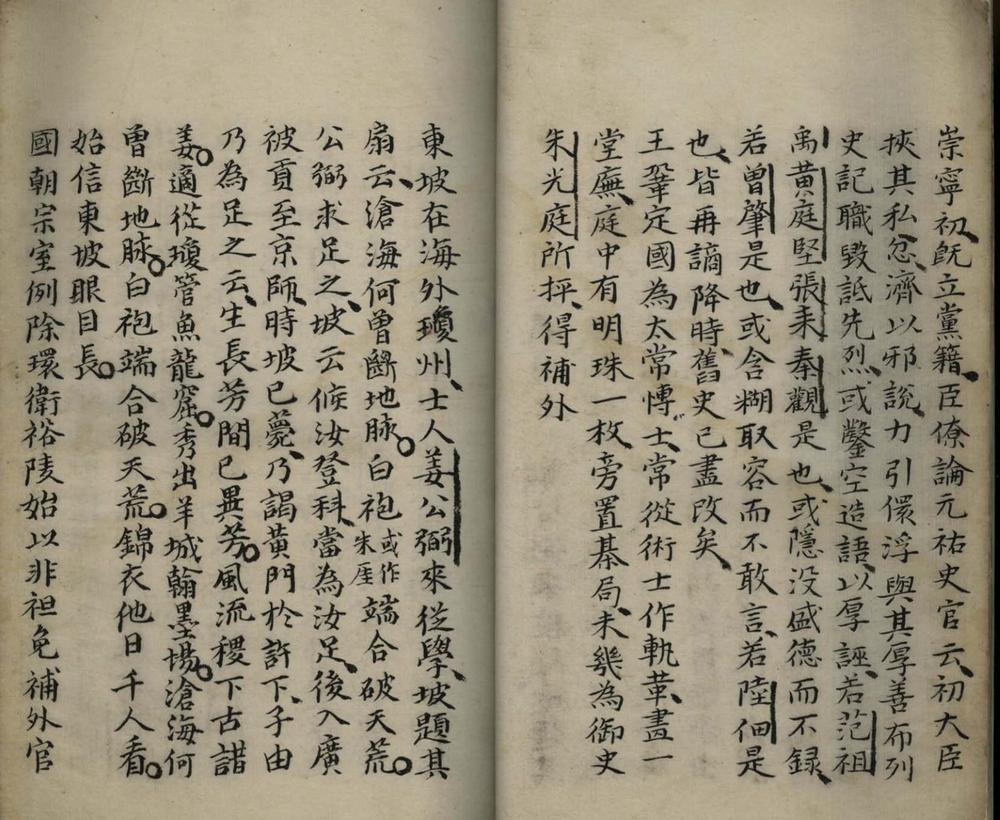 崇寧初既立黨籍臣僚論元祐史官云初大臣
挾其私忿濟以邪說力引儇浮與其厚善布列
史記職毀詆先烈或鑿空造語以厚誣若范祖
禹黃庭堅張耒秦觀是也或隱没盛德而不録
若曾肇是也或含糊取容而不敢言若陸佃是
也皆再謫降時舊史已盡改矣
王鞏定國為太常博士常從術士作軌革畫一
堂廡庭中有明珠一枚旁置棊局未幾為御史
朱光庭所抨得補外
東坡在海外瓊州士人姜公弼來從學坡題其
扇云滄海何曾斷地脉白袍或作朱厓端合破天荒
公弼求足之坡云候汝登科當為汝足後入廣
被貢至京師時坡已薨乃謁黃門於許下子由
乃為足之云生長芳間已異芳風流稷下古諸
姜適從瓊管魚龍窟秀出羊城翰墨場滄海何
曾斷地脉白袍端合破天荒錦衣他日千人看
始信東坡眼目長
國朝宗室例除環衛裕陵始以非袒免補外官